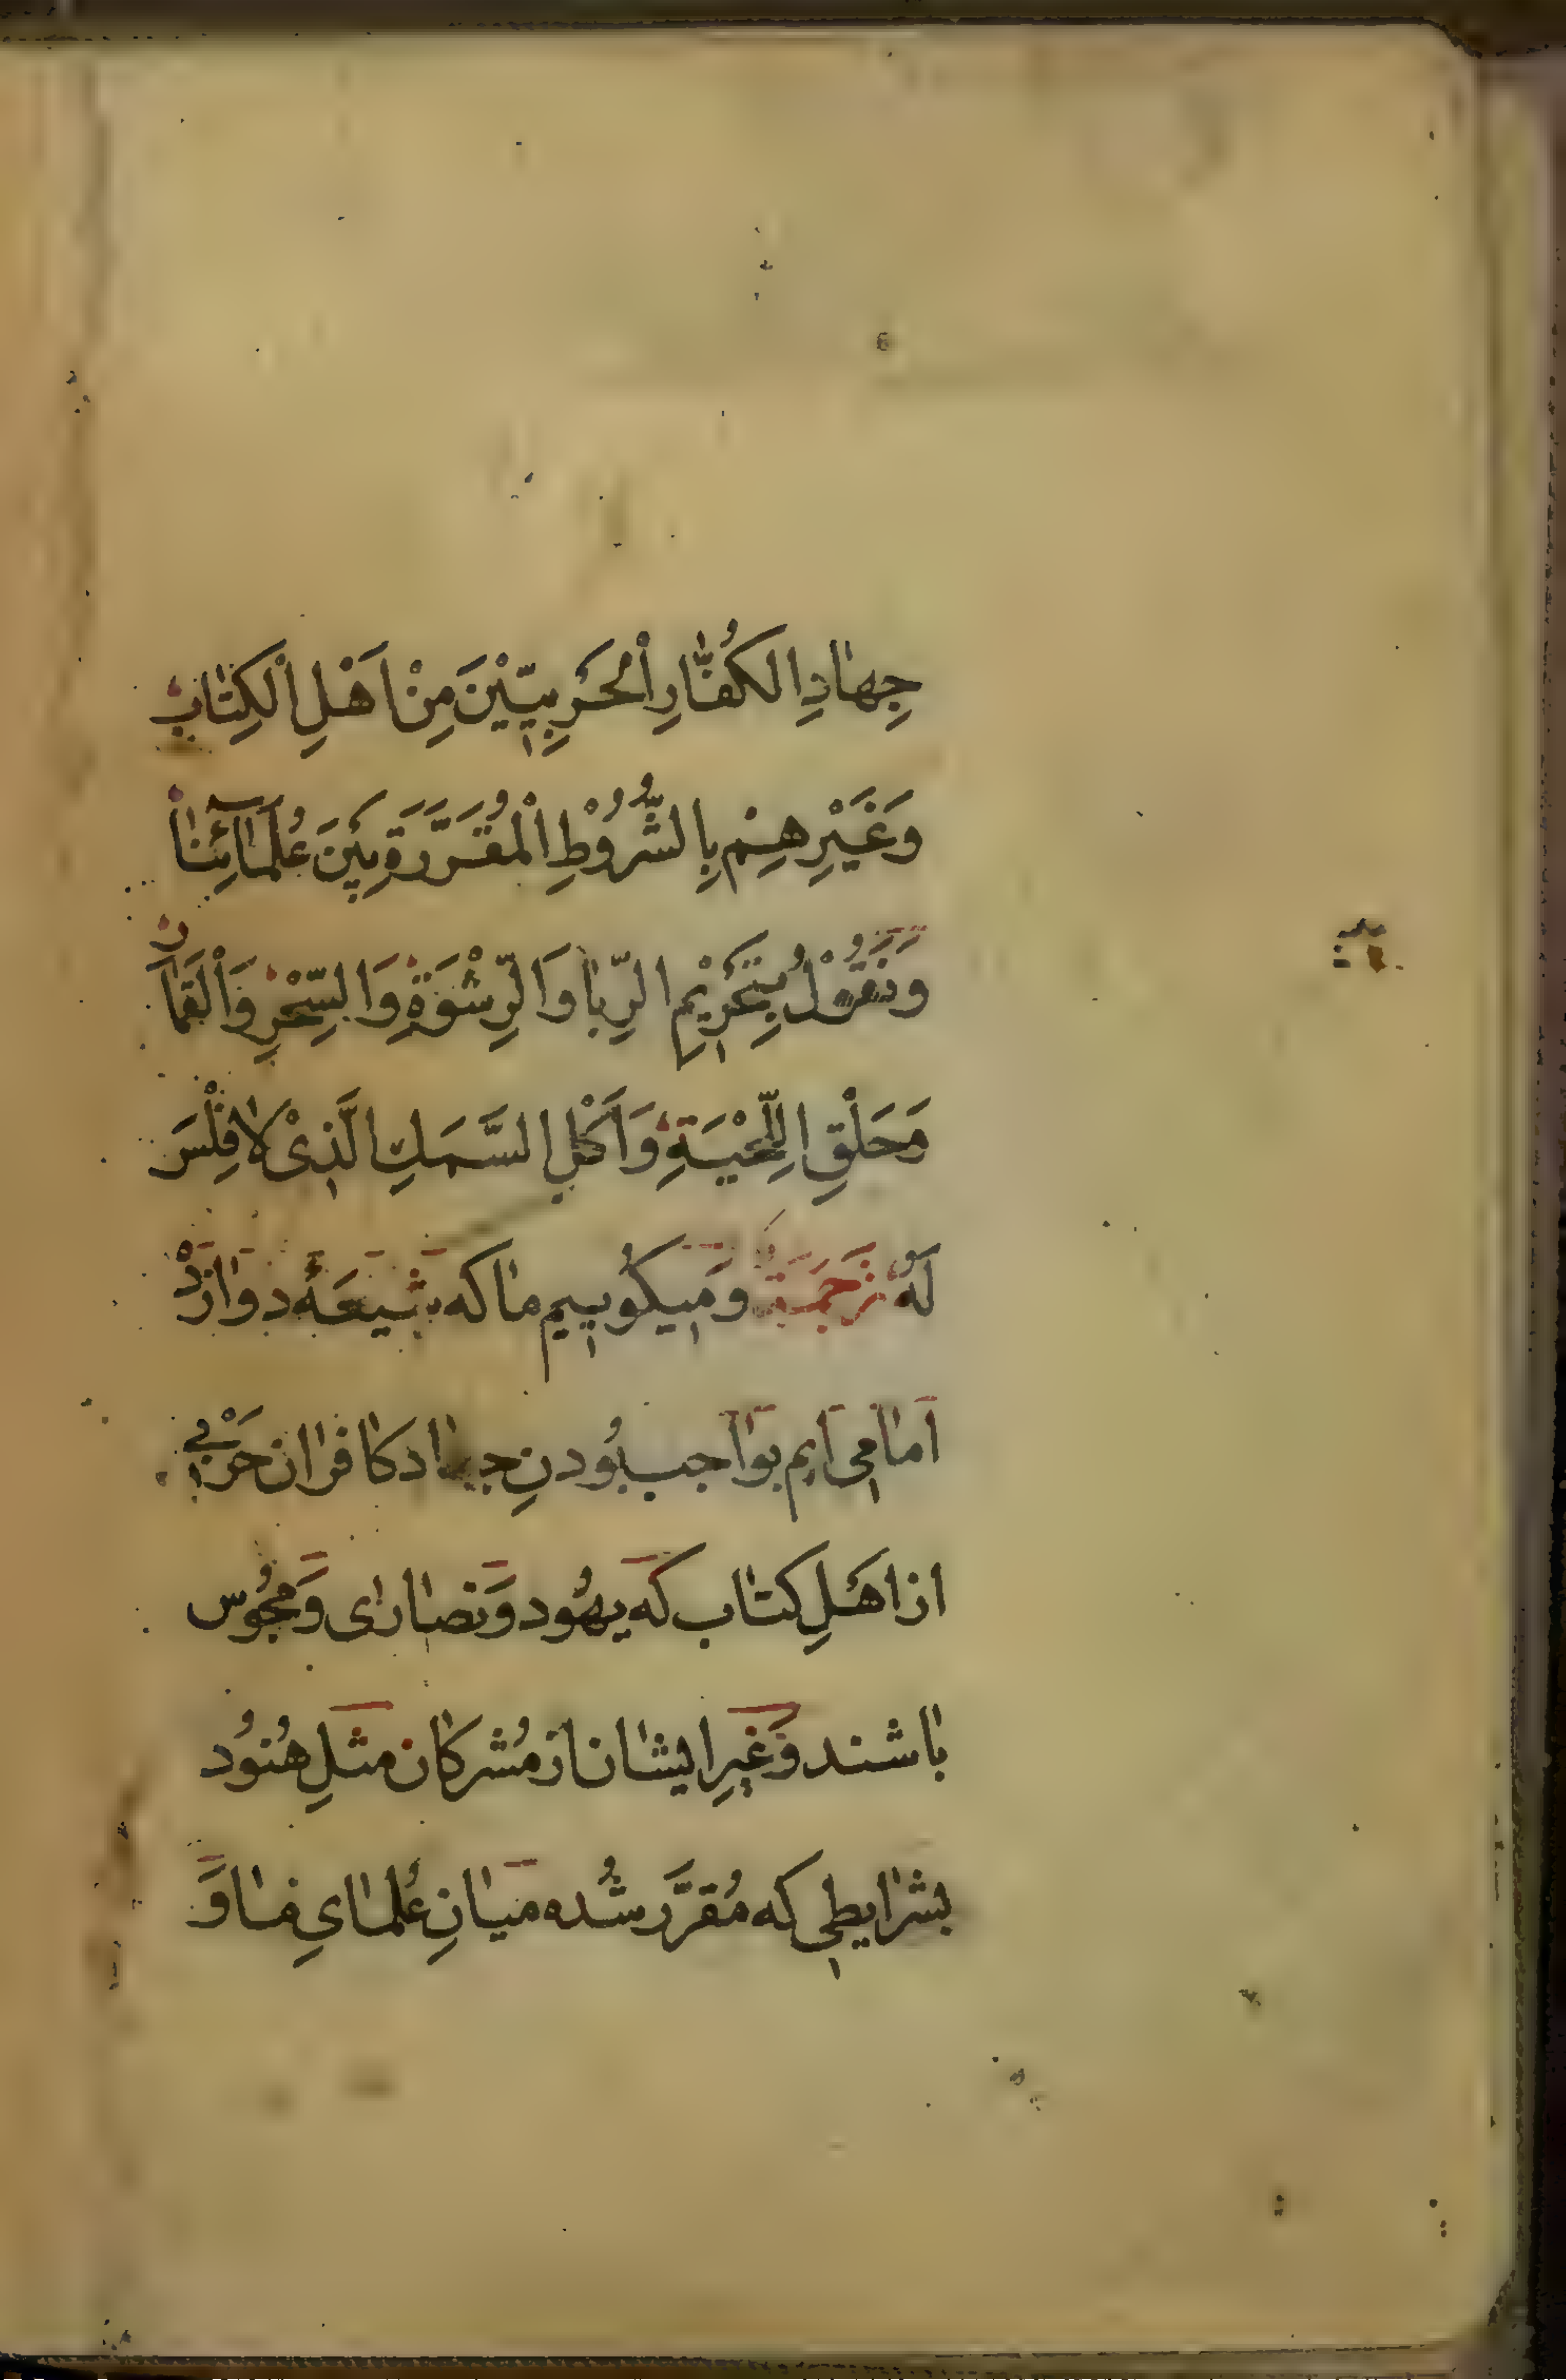 جِهٰادِ الكُفّٰارِ الْحَرَبِیّیْنَ مِنْ اَهْلِ الْكِتٰابْ
وَغَیْرِهِمْ بِالشُّرُوْطِ الْمُقَرَّرَةِ بَیْنَ عُلَمٰآئِنٰا
وَنَقُوْلُ بِتَحْرِیْمِ الرِّبٰا وَالرِّشْوَةِ وَالسِّحْرِ وَالْقِمٰارْ
وَحَلْقِ اللِّحْیَةِ وَاَكْلِ السَّمَكِ الَّذِیْ لافِلْسَ
لَهُ تَرجَمَة وَمیكُوییم ما كه شیعَهٔ دوازدْ
اَمامی ایم بوَاجب بُودنِ جهاد كافران حَرْبی
از اهَلِ كتٰاب كه یهُود وَ نصارای وَ مجُوس
باشند وَغیرِ ایشان از مُشركان مثلِ هُنُود
بشرایطی كه مُقرَّر شُده میانِ عُلمایِ ما وَ